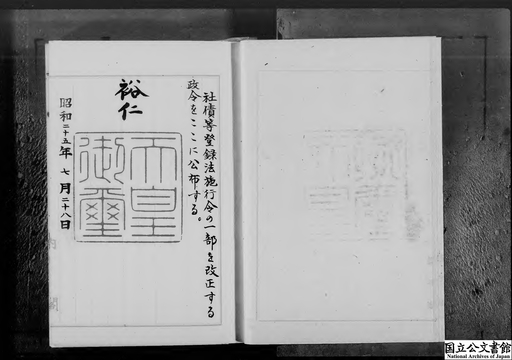 社債等登録法施行令の一部を改正する
政令をここに公布する。
裕仁
天皇
御璽
昭和二十五年七月二十八日
国立公文書館
National Archives of Japan